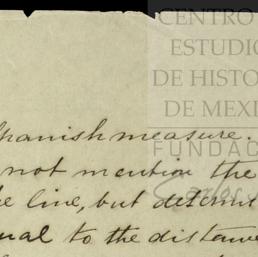 CENTRO
ESTUDIO
DE HISTOR
DE MEXI
FUNDAC
Spanish measure.
not mention the
line, but determi
ual to the distance